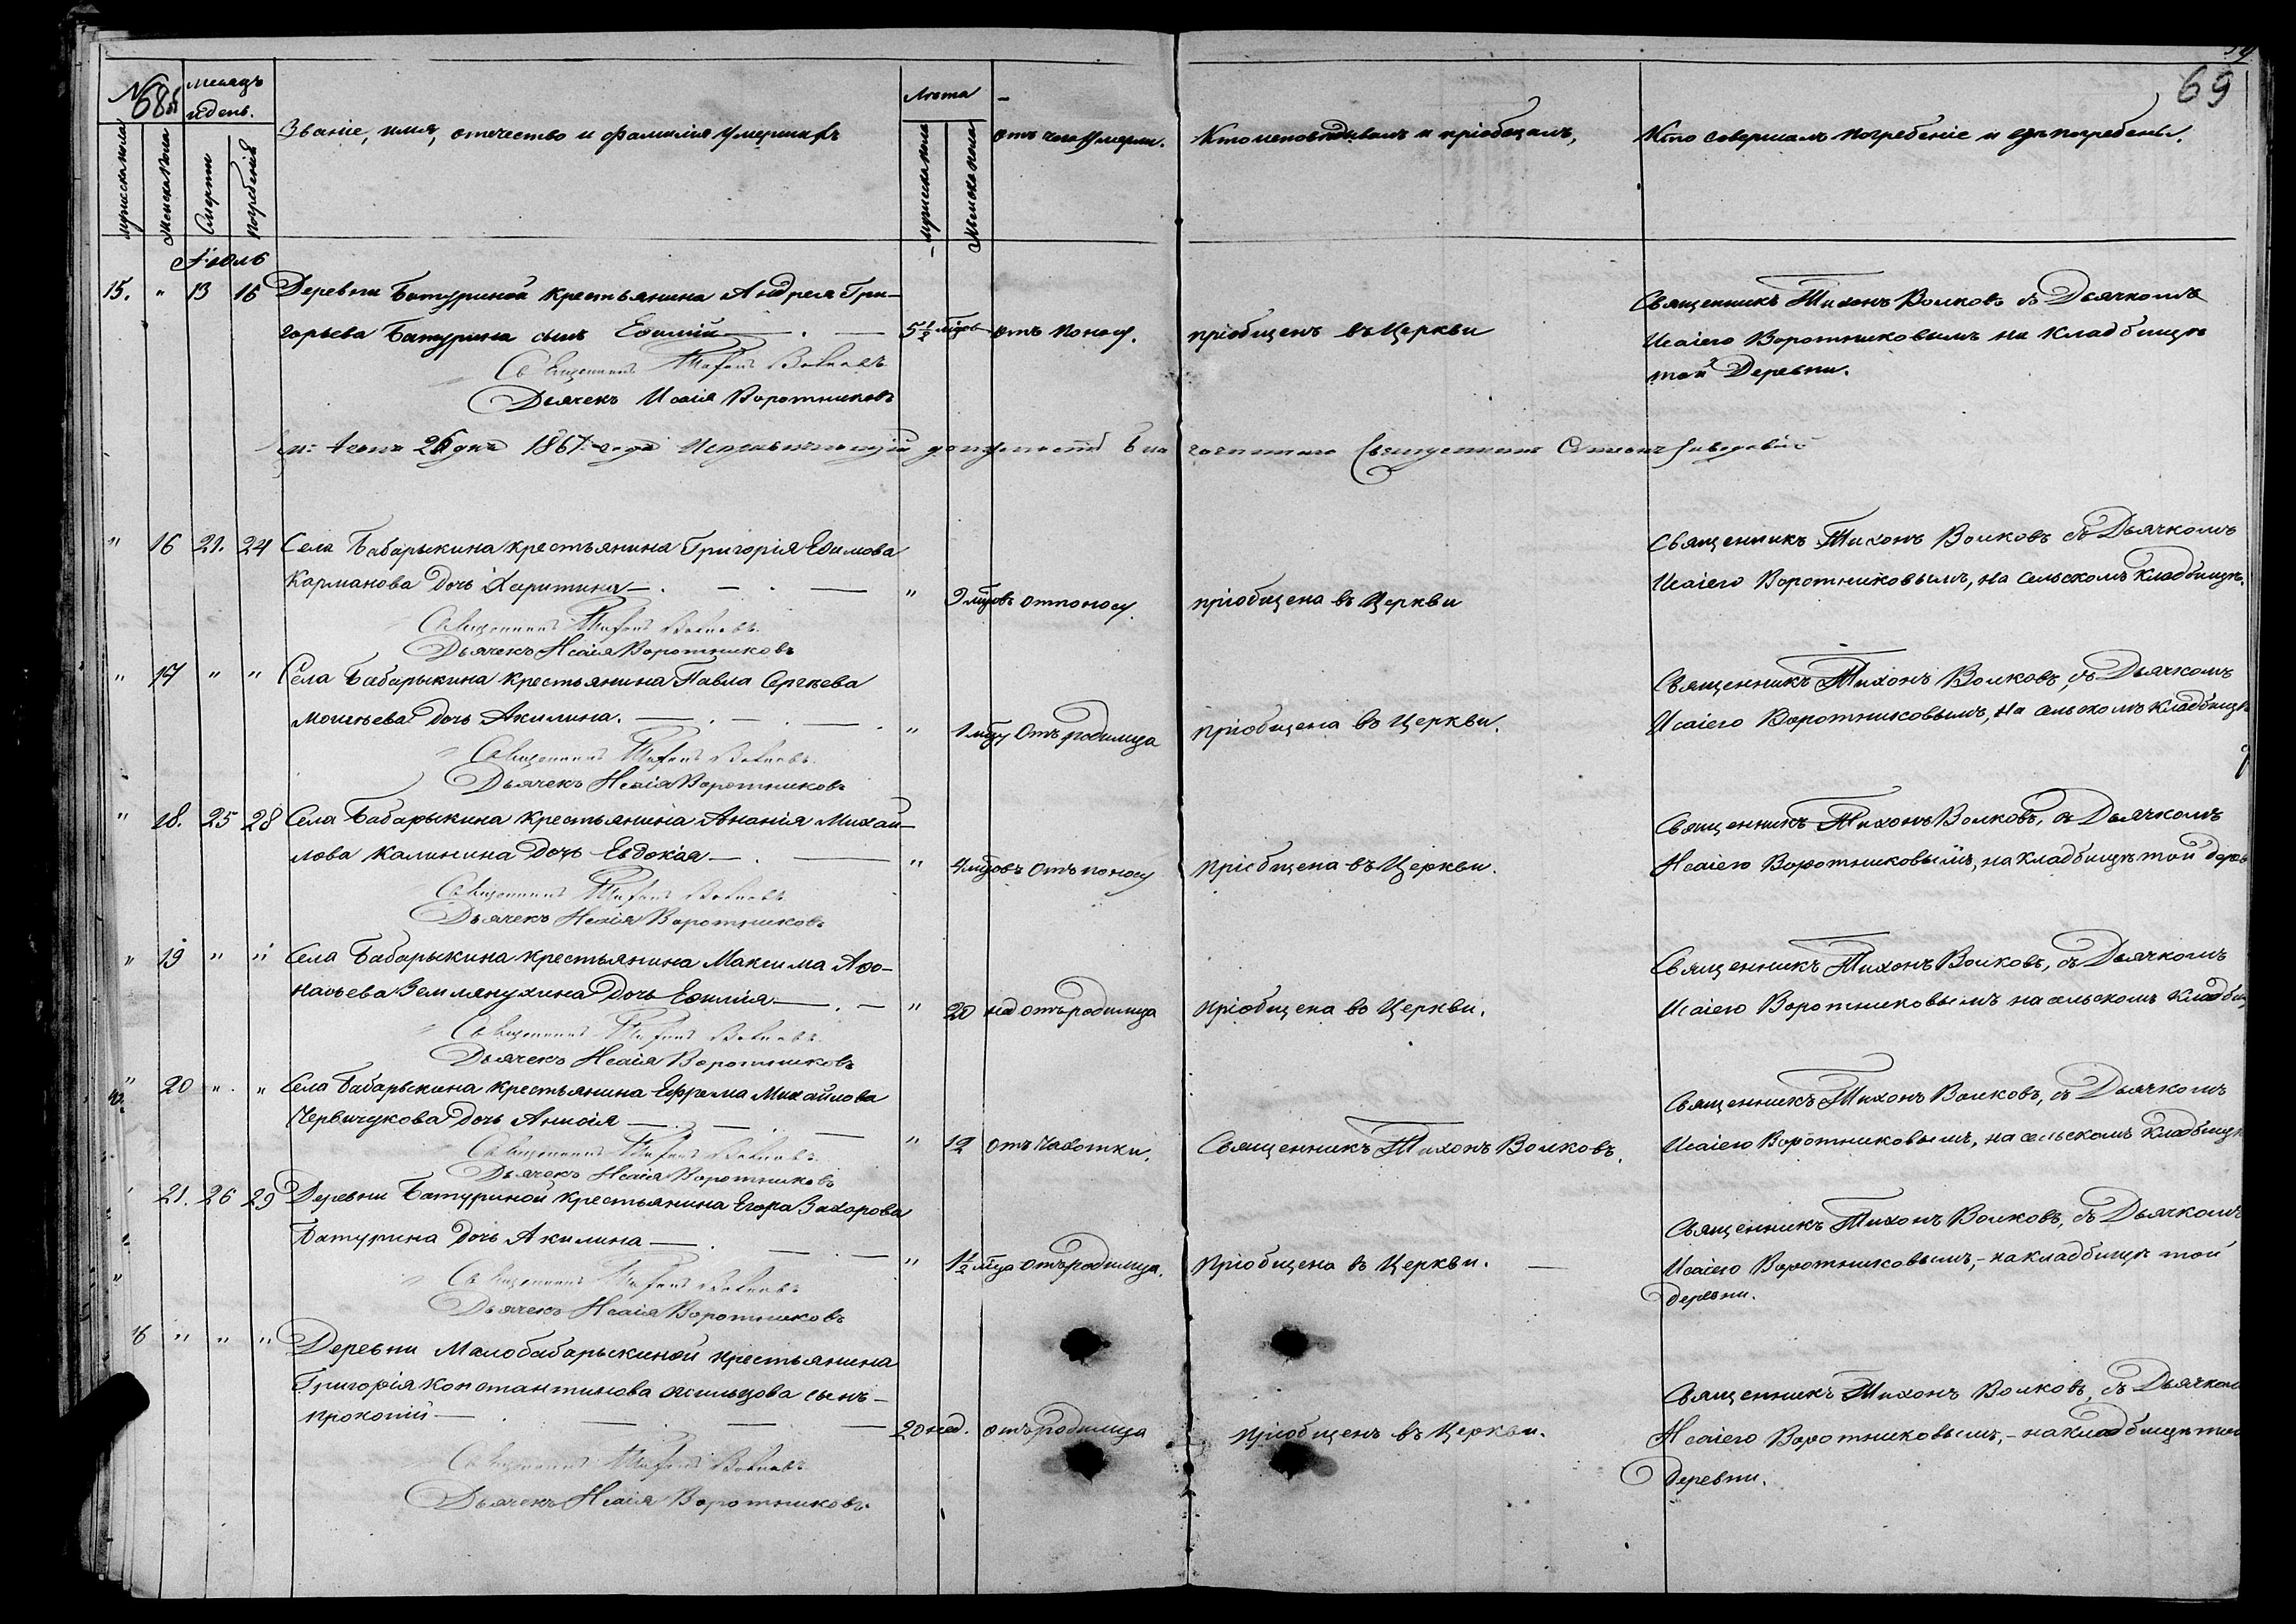 69
№ 68об
месяцъ и день.
Званіе, имя, отчество и фамилія умершихъ
Лѣта
отъ чего умерли.
Кто исповѣдывалъ и пріобщалъ,
Кто совершалъ погребеніе и гдѣ погребены.
мужеска пола
Женска пола
Смерти
погребенія
мужеска пола
Женска пола
Іюль
15. " 13 16 Деревни Батуриной крестьянина Андрея Гри-
горьева Батурина сынъ Ефимій 5½ мцов отъ поносу. пріобщенъ въ Церкви
Священникъ Тихонъ Волковъ съ Дьячкомъ
Исаіею Воротниковымъ на Кладбищѣ
той Деревни.
Священникъ Тихонъ Волковъ
Дьячекъ Исаія Воротниковъ
26 дня 1867 года
" 16 21. 24 Села Бабарыкина крестьянина Григорія Ефимова
Карманова дочь Харитина " 9 мцовъ от поносу. пріобщена въ Церкви
Священникъ Тихонъ Волковъ съ Дьячкомъ
Исаіею Воротниковымъ, на сельскомъ Кладбищѣ.
Священникъ Тихонъ Волковъ.
Дьячекъ Исаія Воротниковъ
" 17 " " Села Бабарыкина крестьянина Павла Сергѣева
Моисѣева дочь Акилина. " 1 мцу Отъ родимца пріобщена въ Церкви.
Священникъ Тихонъ Волковъ, съ Дьячкомъ
Исаіею Воротниковымъ, на сельскомъ Кладбищѣ
Священникъ Тихонъ Волковъ.
Дьячекъ Исаія Воротниковъ
" 18. 25 28 Села Бабарыкина крестьянина Ананія Михай-
лова Калинина дочь Евдокія " 4 мцовъ отъ поносу Пріобщена въ Церкви.
Священникъ Тихонъ Волковъ, съ Дьячкомъ
Исаіею Воротниковымъ, на кладбищѣ той дерев
Священникъ Тихонъ Волковъ.
Дьячекъ Исаія Воротниковъ
" 19 " " Села Бабарыкина крестьянина Максима Афо-
насьева Землянухина дочь Ефимія " 20 нед отъ родимца пріобщена въ Церкви.
Священникъ Тихонъ Волковъ, съ Дьячкомъ
Исаіею Воротниковымъ на сельскомъ Кладбищ
Священникъ Тихонъ Волковъ.
Дьячекъ Исаія Воротниковъ
" 20 " " Села Бабарыкина крестьянина Ефрема Михайлова
Червичукова дочь Анисія " 12 отъ Чахотки. Священникъ Тихонъ Волковъ.
Священникъ Тихонъ Волковъ, съ Дьячкомъ
Исаіею Воротниковымъ, на сельскомъ Кладбищѣ
Священникъ Тихонъ Волковъ.
Дьячекъ Исаія Воротниковъ
21. 26 29 Деревни Батуриной крестьянина Егора Захорова
Батурина дочь Акилина " 1½ мца отъ родимца. Пріобщена въ Церкви.
Священникъ Тихонъ Волковъ, съ Дьячкомъ
Исаіею Воротниковымъ, - на кладбищѣ той
деревни.
Священникъ Тихонъ Волковъ
Дьячекъ Исаія Воротниковъ
16 " " " Деревни Малобабарыкиной крестьянина
Григорія Константинова Жильцова сынъ
Прокопій 20 нед. отъ родимца пріобщенъ въ Церкви.
Священникъ Тихонъ Волковъ, съ Дьячком
Исаіею Воротниковымъ, - на кладбищѣ той
Деревни.
Священникъ Тихонъ Волковъ.
Дьячекъ Исаія Воротниковъ.